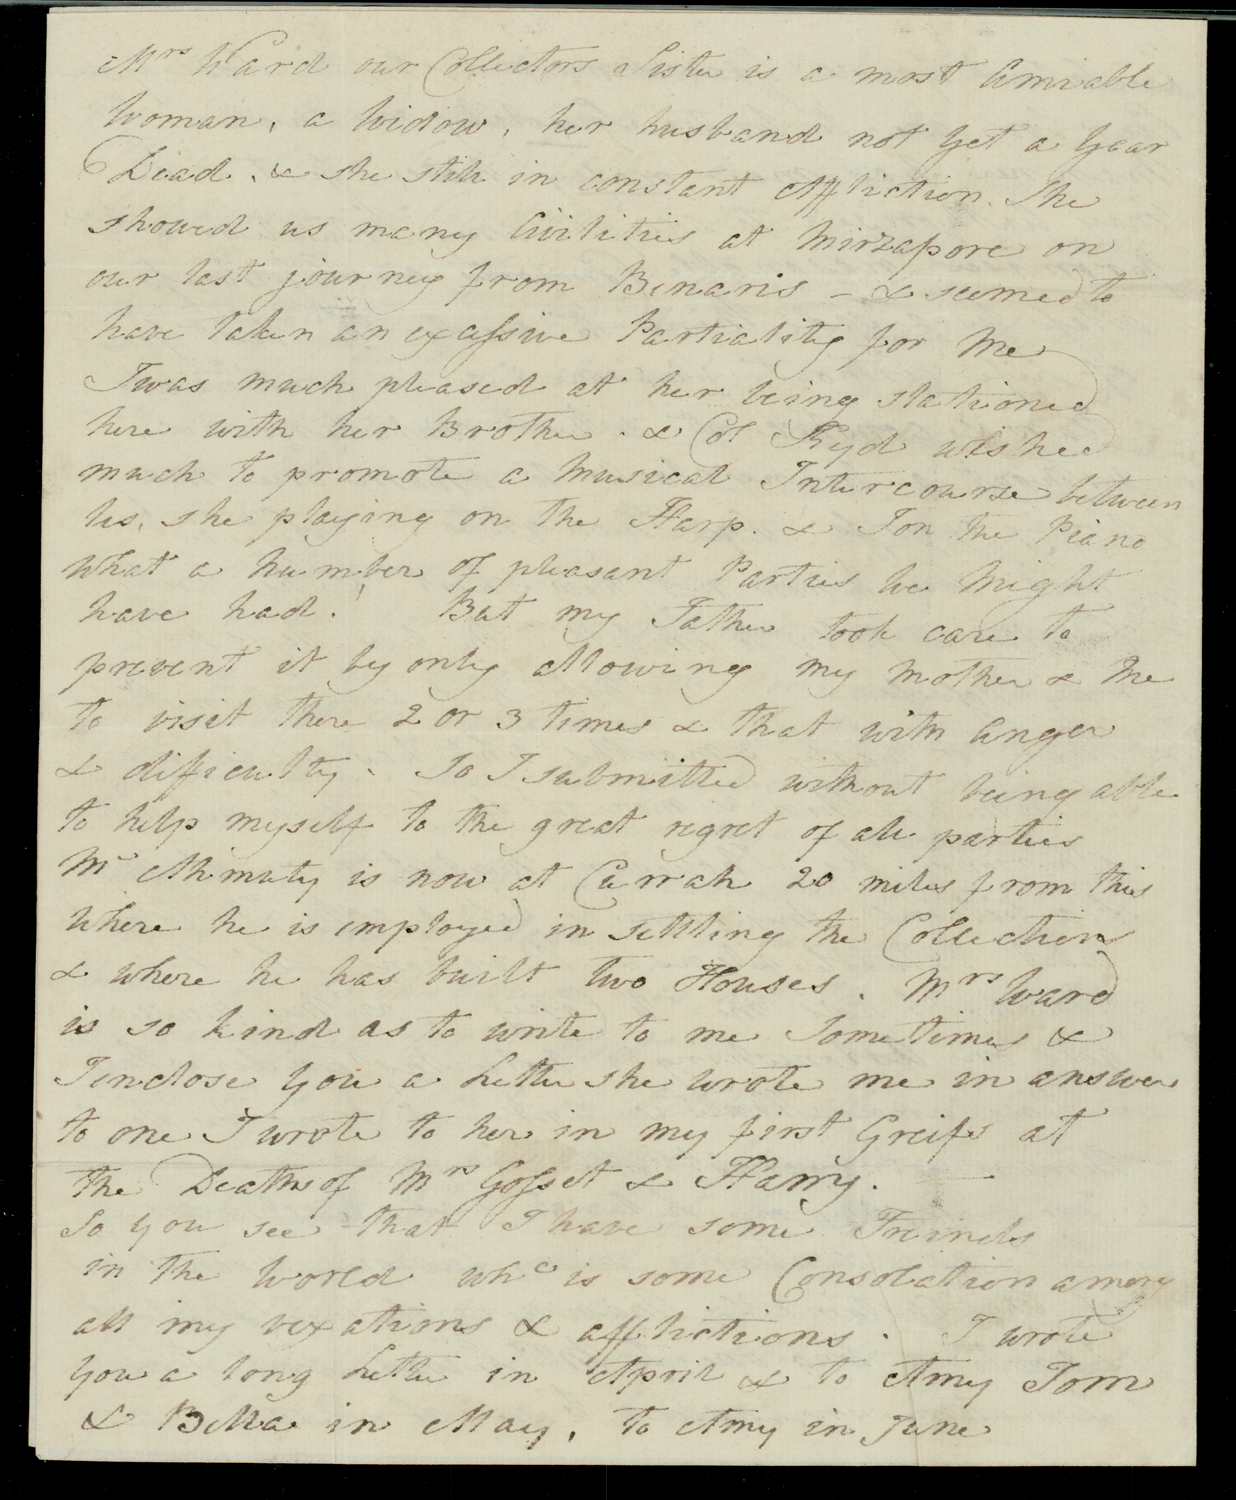 Mrs Ward our Collectors Sister is a most Amiable
Woman, a Widow, her husband not yet a year
Dead. & she still in constant Affliction. She
showed us many Civilities at Mirzapore on
our last journey from Binaris – & seemed to
have taken an excessive Partiality for Me
I was much pleased at her being stationed
here with her Brother. & Col Kyd wished
much to promote a Musical Intercourse between
Us, she playing on the Harp. & I on the Piano
What a Number of pleasant Parties we Might
have had! But my Father took care to
prevent it by only Allowing my Mother & Me
to visit there 2 or 3 times & that with Anger
& difficulty. So I submitted without being able
to help myself to the great regret of all parties
Mr Ahmuty is now at Currah 20 miles from this
Where he is employed in settling the Collections
& where he has built two Houses. Mrs Ward
is so kind as to write to me Sometimes &
I enclose you a Letter she wrote me in answer
to one I wrote to her in my first Greifs at
the Deaths of Mrs Gosset & Harry. —
So you see that I have some Freinds
in the World whc is some Consolation among
all my vexations & afflictions. I wrote
you a long Letter in April & to Amy Tom
& Bella in May, to Amy in June